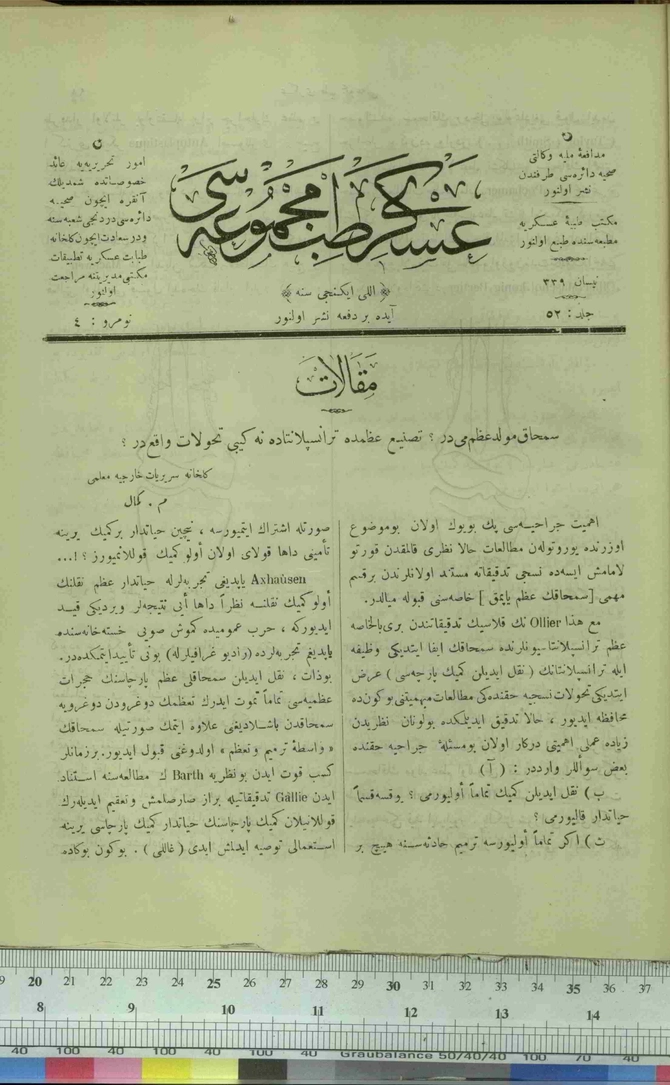 مدافعهٔ ملیه وکالتی
صحیه دائره‌سی طرفندن
نشر اولنور
مکتب طبیهٔ عسکریه
مطبعه‌سنده طبع اولنور
نیسان ٣٣٩
جلد : ٥٢
عسکری طب مجموعه‌سی
اللی ایکنجی سنه
آیده بر دفعه نشر اولنور
امور تحریریه‌یه عائد
خصوصاتده شمدیلك
آنقره ایچون صحیه
دائره‌سی دردنجی شعبه‌سنه
ودرسعادت ایچون کلخانه
طبابت عسکریه تطبیقات
مکتبی مدیریتنه مراجعت
اولنور
نومرو : ٤
مقالات
سمحاق مولد عظم می در ؟ تصنیع عظمده ترانسپلانتاده نه کبی تحولات واقع در ؟
کلخانه سریریات خارجیه معلمی
م . کمال
اهمیت جراحیه‌سی پك بویوك اولان بوموضوع
اوزرنده یوروتولەن مطالعات حالا نظری قالمقدن قورتو
لامامش ایسه‌ده نسجی تدقیقاته مستند اولانلرندن برقسم
مهمی [سمحاقك عظم یاپمق] خاصه‌سنی قبوله میالدر.
مع هذا Ollier نك قلاسیك تدقیقاتندن بری بالخاصه
عظم ترانسپلانتاسیونلرنده سمحاقك ایفا ایتدیکی وظیفه
ایله ترانسپلانتانك (نقل ایدیلن کمیك پارچه‌سی) عرض
ایتدیکی تحولات نسجیه حقنده‌کی مطالعات مبهمیتنی بوکون‌ده
محافظه ایدیور ، حالا تدقیق ایدیلمکده بولونان نظریدن
زیاده عملی اهمیتی درکار اولان بومسئلهٔ جراحیه حقنده
بعض سوٲللر وارددر : ( آ )
ب ) نقل ایدیلن کمیك تماماً ٲولیورمی ؟ یوقسه قسماً
حیاتدار قالیرمی ؟
ت ) اکر تماماً ٲولیورسه ترمیم حادثه‌سنه هیچ بر
صورتله اشتراك ایتمیورسه ، نیچین حیاتدار برکمیك یرینه
تأمینی داها قولای اولان ٲولو کمیك قوللانمیورز ؟ !...
Axhaüsen یاپدیغی تجربه‌لرله حیاتدار عظم نقلنك
ٲولو کمیك نقلنه نظراً داها أیی نتیجه‌لر ویردیکی قید
ایدیورکه ، حرب عمومیده کموش صویی خسته‌خانه‌سنده
یاپدیغم تجربه‌لرده (رادیوغرافیلرله) بونی تأیید ایتمکده‌در.
بوذات ، نقل ایدیلن سمحاقلی عظم پارچاسنك حجرات
عظمیه‌سی تماماً تموت ایدرك تعظمك دوغرودن دوغرویه
سمحاقدن باشلادیغنی علاوه ایتمك صورتیله سمحاقك
« واسطهٔ ترمیم وتعظم » اولدوغنی قبول ایدیور. برزمانلر
کسب قوت ایدن بونظریه Barth ك مطالعه‌سنه استناد
ایدن Gallie تدقیقاتیله براز صارصلمش وتعقیم ایدیله‌رك
قوللانیلان کمیك پارچاسنك حیاتدار کمیك پارچاسی یرینه
استعمالی توصیه ایدلمش ایدی (غاللی) . بوکون بوکاده